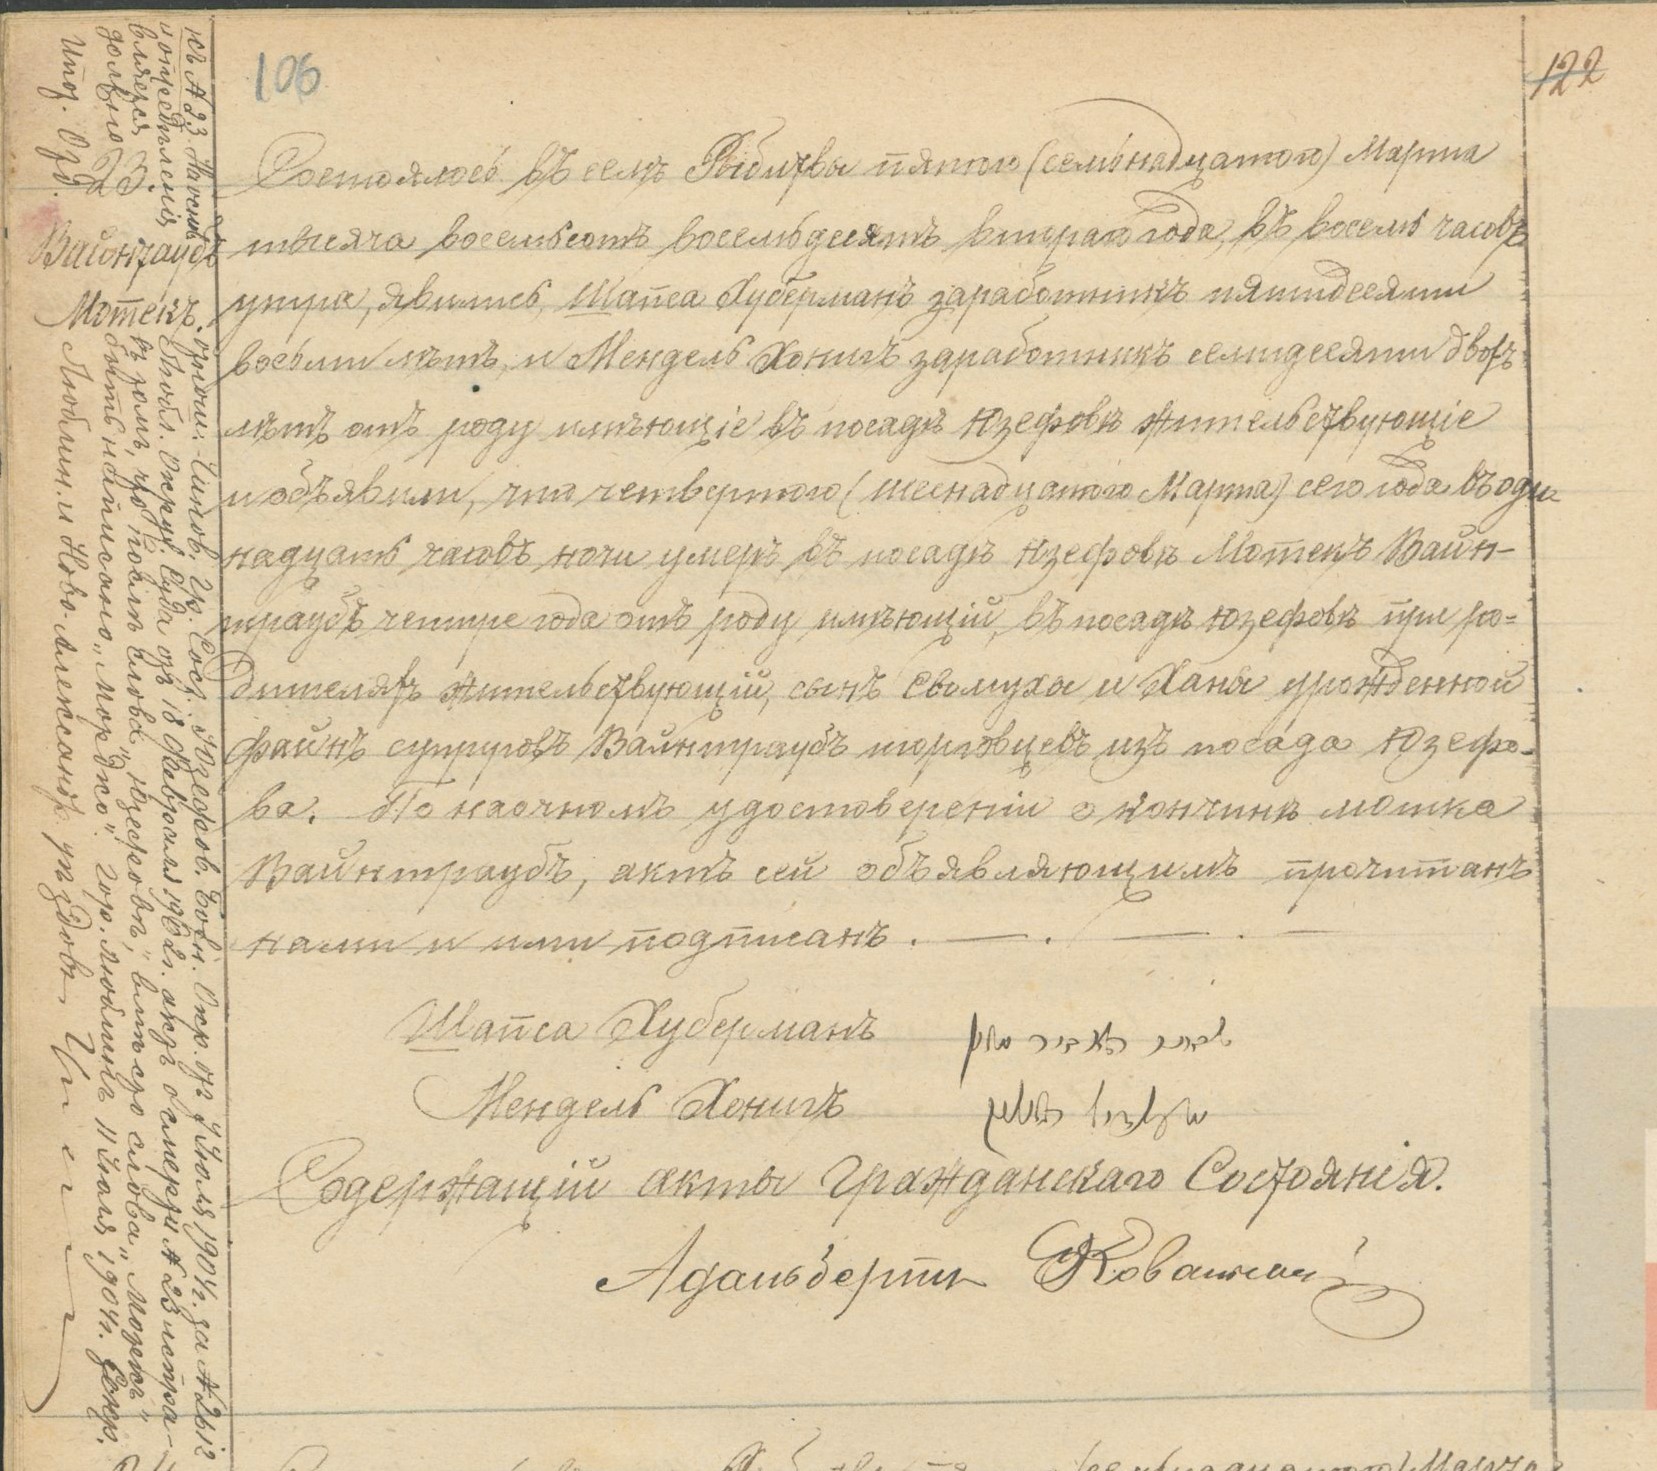 106
122
23.
Вайнтраубъ
Мотекъ.
Состоялось въ селѣ Рыбитвы пятого (семьнадцатого) Марта
тысяча восемьсотъ восемьдесятъ втораго года, въ восемь часовъ
утра, явились, Шапса Хуберманъ заработникъ пятидесяти
восьми лѣтъ, и Мендель Хонигъ заработникъ семидесяти двохъ
лѣтъ отъ роду имѣющіе въ посадѣ Юзефовѣ жительствующіе
и объявили, что четвертого (шеснадцатого Марта) сего года въ оди
надцать часовъ ночи умеръ въ посадѣ Юзефовѣ Мотекъ Вайн-
траубъ четыре года отъ роду имѣющій, въ посадѣ Юзефовѣ при ро=
дителяхъ жительствующій, сынъ и Ханы урожденной
Файнъ супруговъ Вайнтраубъ торговцевъ изъ посада Юзефо-
ва. По наочномъ удостовереніи о кончинѣ мотка
Вайнтраубъ, актъ сей объявляющимъ прочитанъ
нами и ими подписанъ.
Шапса Хуберманъ
Мендель Хонигъ
Содержащій акты Гражданскаго Состоянія.
Адальбертъ
къ А 23 На основ. опредѣленія Любл. Окруж. Суда отъ 18 Февраля 190 г. актъ о смерти А 23
въ томъ, что послѣ слова „Юзефовѣ," вмѣсто слова „Мотекъ"
должно быть написано „Мордко". Гор. Люблинъ 11 Іюля 1904 г.
Люблин. и Ново-Александр. уѣздовъ